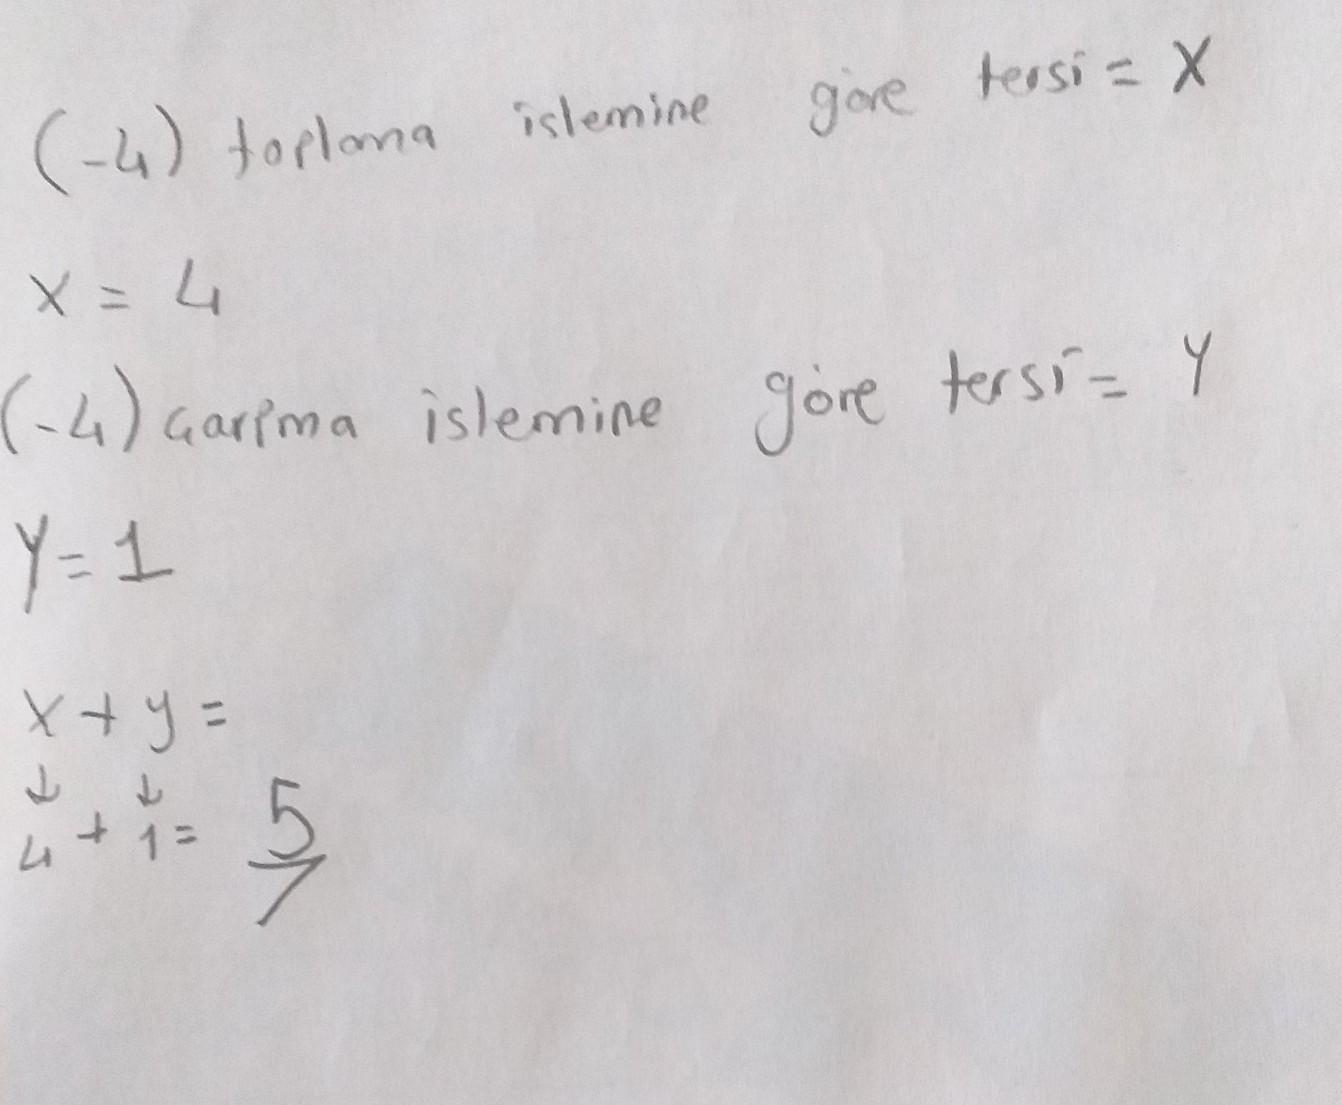 (-4) toplama islemine göre tersi = X
x = 4
(-4) Carpma islemine göre tersi = Y
Y = 1
x + y =
↓ ↓
4 + 1 = 5